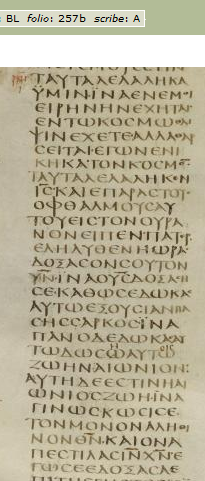 : BL folio: 257b scribe: A
ΤΑΥΤΑΛΕΛΑΛΗΚΑ
ΫΜΙΝΪΝΑΕΝΕΜΟΙ
ΕΙΡΗΝΗΝΕΧΗΤΑΙ
ΕΝΤΩΚΟϹΜΩΘΛΙ
ΨΙΝΕΧΕΤΕΑΛΛΑΘΑΡ
ϹΕΙΤΑΙΕΓΩΝΕΝΙ
ΚΗΚΑΤΟΝΚΟϹΜΟ̅
ΤΑΥΤΑΛΕΛΑΛΗΚΕΝ
ΙϹ̅ΚΑΙΕΠΑΡΑϹΤΟΥϹ
ΟΦΘΑΛΜΟΥϹΑΥ
ΤΟΥΕΙϹΤΟΝΟΥΡΑ
ΝΟΝΕΙΠΕΝΠΑΤΗΡ
ΕΛΗΛΥΘΕΝΗΩΡΑ·
ΔΟΞΑϹΟΝϹΟΥΤΟΝ
ΥΝ̅·ΙΝΑΟΥϹ̅ΔΟΞΑϹΗ
ϹΕ·ΚΑΘΩϹΕΔΩΚΑϹ
ΑΥΤΩΕΞΟΥϹΙΑΝΠΑ
ϹΗϹϹΑΡΚΟϹΪΝΑ
ΠΑΝΟΔΕΔΩΚΑϹΑΥ
ΤΩΔΩϹΩΑΥΤΟΙϹ
ΖΩΗΝΑΙΩΝΙΟΝ·
ΑΥΤΗΔΕΕϹΤΙΝΗΑΙ
ΩΝΙΟϹΖΩΗ·ΪΝΑ
ΓΙΝΩϹΚΩϹΙϹΕ
ΤΟΝΜΟΝΟΝΑΛΗΘΙ
ΝΟΝΘΝ̅·ΚΑΙΟΝΑ
ΠΕϹΤΙΛΑϹΙΝ̅ΧΝ̅Ε
ΓΩϹΕΕΔΟΞΑϹΑΕ